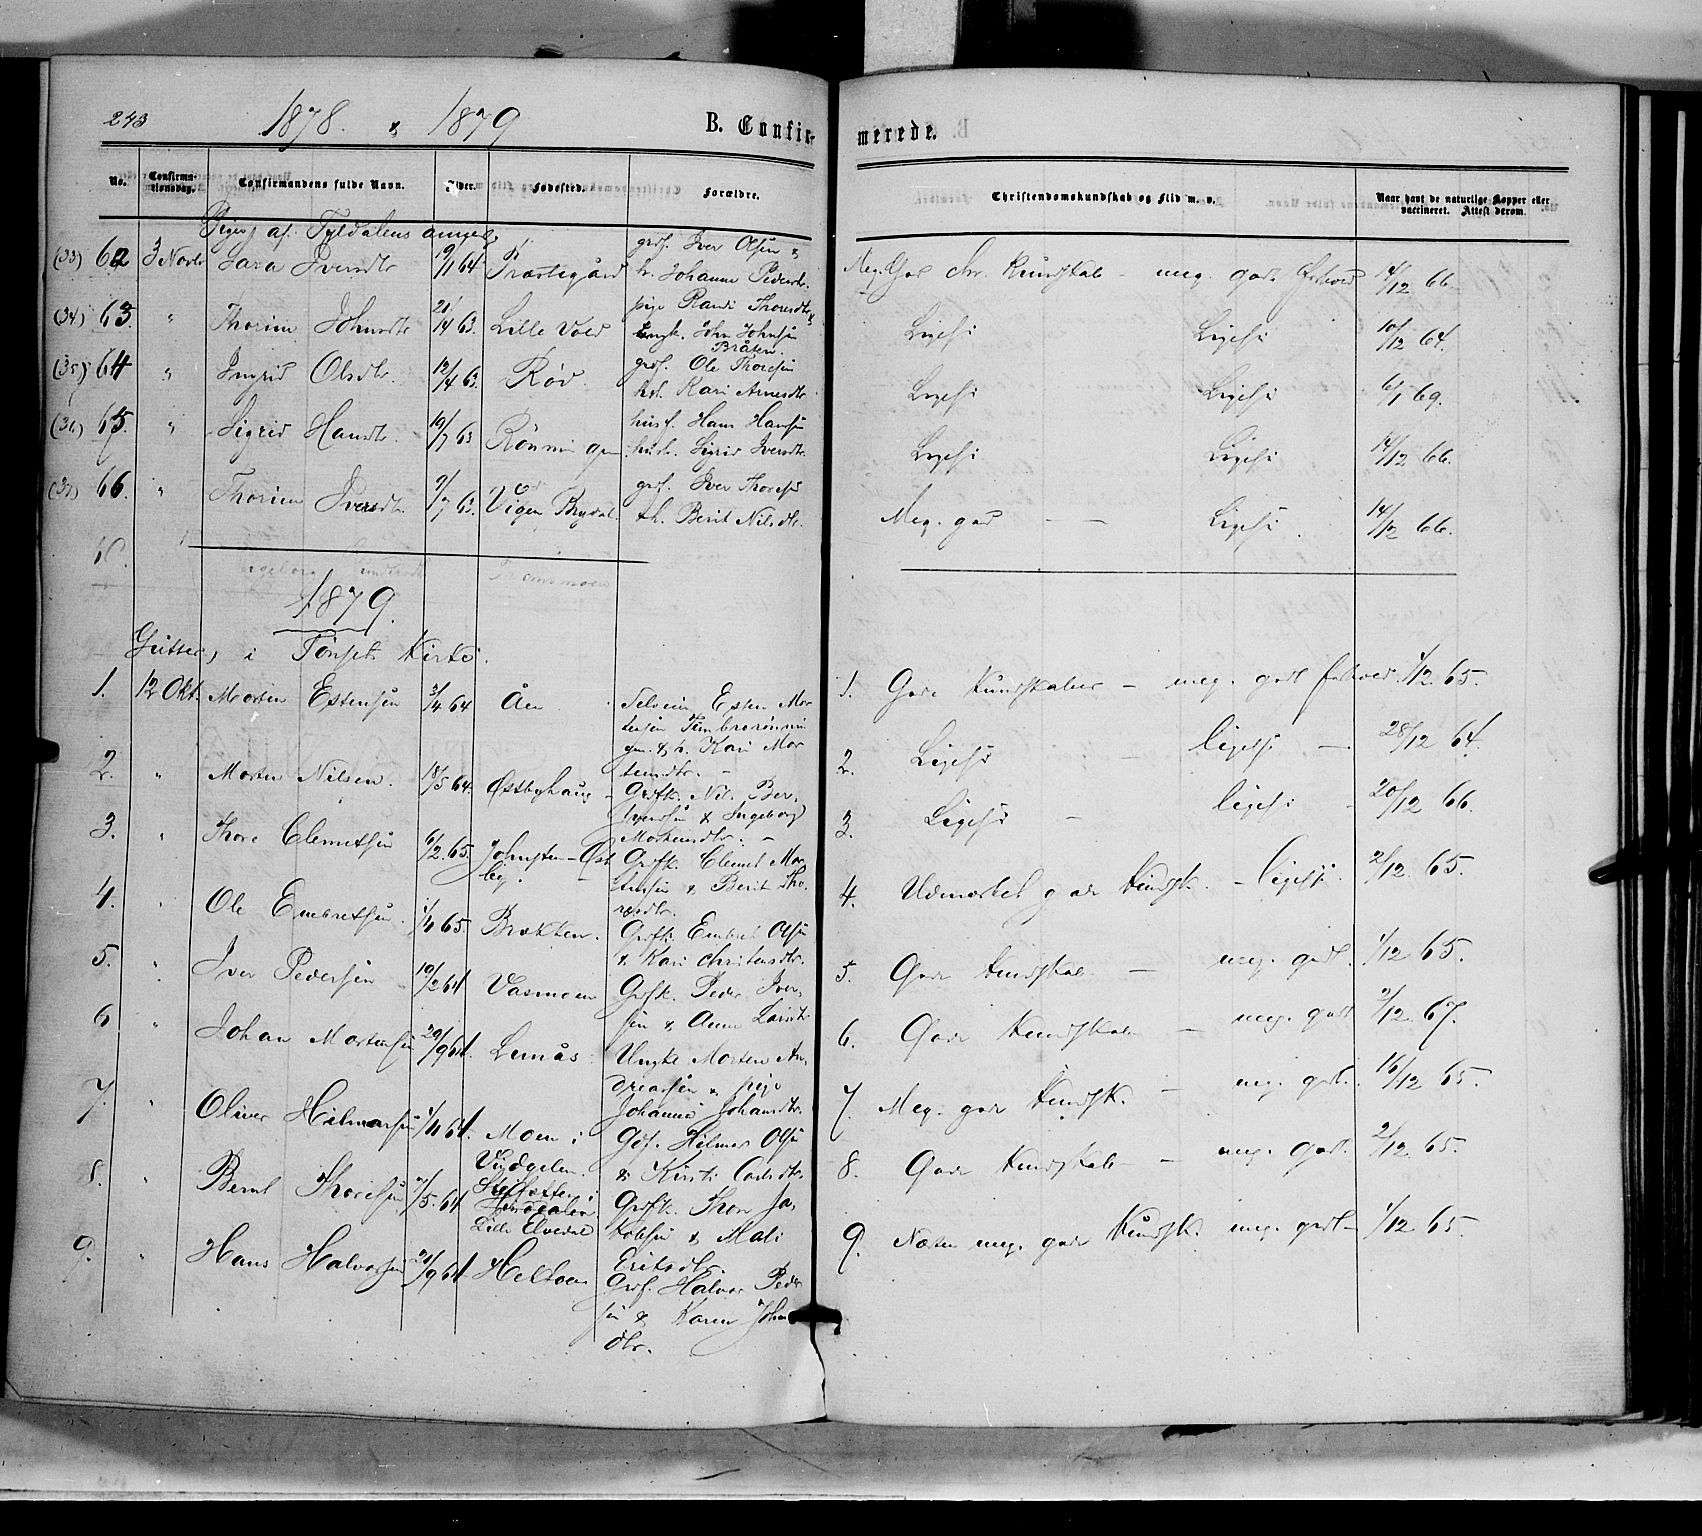 243 1878. & 1879 B. Confir-
merede.
No. Confirma-tionsdag. Confirmandens fulde Navn. Alder. Fødested. Forældre.
Christendomskundskab og Flid m. v. Naar havt de naturlige Kopper eller vaccineret. Attest derom.
Piger af Tyldalens annex,
(33) 62 3 Novbr Iversdtr 19/11 64 Præstegård grdf. Iver Olsen & h. Johanne Pedersdtr. Meg. God Chr. Kundskab – meg. godt Forhold 14/12 66.
(34) 63. " Thorine Johnsdtr 21/14 63. Lille Vold pige Randi Thoresdtr & ungk. John Johnsen Bråten. Ligeså Ligeså 10/12 64.
(35) 64 " Ingrid Olsdtr. 12/4 63. Rød. grdf. Ole Thoresen hst. Kari Arnesdtr Ligeså Ligeså 6/1 69.
(36) 65. " Sigrid Hansdtr. 19/7 63 Rønningen husf. Hans Hansen hustr. Sigrid Iversdtr. Ligeså Ligeså 14/12 66.
(37) 66. " Thorine Iversdtr. 9/7 63. Vigen Brydal. grdf. Iver Thoresen & h. Berit Nilsdtr. Meg. god – – Ligeså 14/12 66.
1879.
Gutter, i Tönset Kirke.
1. 12 Okt. Morten Estensen 3/4 64 Åen Selveier Esten Mor
tensen Tømbrerønnin
gen. & h. Kari Mor
tensdtr. –
1. Gode Kundskaber – meg. godt forhold. 1/12 65.
2. " Morten Nilsen. 18/5 64. Østbyhaug – Grdfk. Nils Ber.
& Ingeborg
Mortensdtr. –
2. Ligeså ligeså – 28/12 64.
3. " Thore Clemetsen 6/2. 65. – Øst
by. Grdfk. Clemet Mor
tensen & Berit Tho
resdtr.
3. Ligeså – ligeså – 20/12 66.
4. " Ole Embretsen. 1/4 65. Brækken. Grdfk. Embret Olsen
& Kari Christensdtr.
4. Udmærket gode Kundsk. – ligeså. 2/12 65.
5. " Iver Pedersen 19/2 64 Vasmoen Grdfk. Peder Iver-
sen & Anne Larsdtr.
5. Gode Kundskab. – meg. godt. 1/12 65.
6 " Johan Mortensen 29/9 64. Lunås Ungk. Morten An
dreassen & pige
Johanne Johansdtr.
6. Gode Kundskab – meg. godt 2/12. 67.
7. " Oliver Hilmarsen 1/4 64. Moen i
Vingelen. Gdf. Hilmer Olsen
& Kirsti Carlsdtr.
7. Meg. gode Kundsk. – meg. godt. 16/12 65.
8. " Bernt Thoresen 2/5. 64
Lille Elvedal Grdfk. Thore Ja
kobsen & Mali
Eriksdtr.
8. Gode Kundskab – meg. godt. 2/12. 65.
9. " Hans Halvorsen 21/9 64 Grdf. Halvor Peder
sen & Karen John
dtr.
9. Næsten meg. gode Kundsk. meg. godt – 1/12. 65.